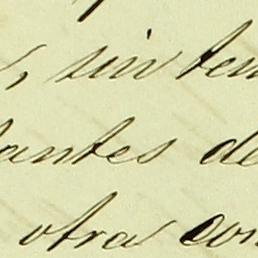 , sin ten
antes de
otra con